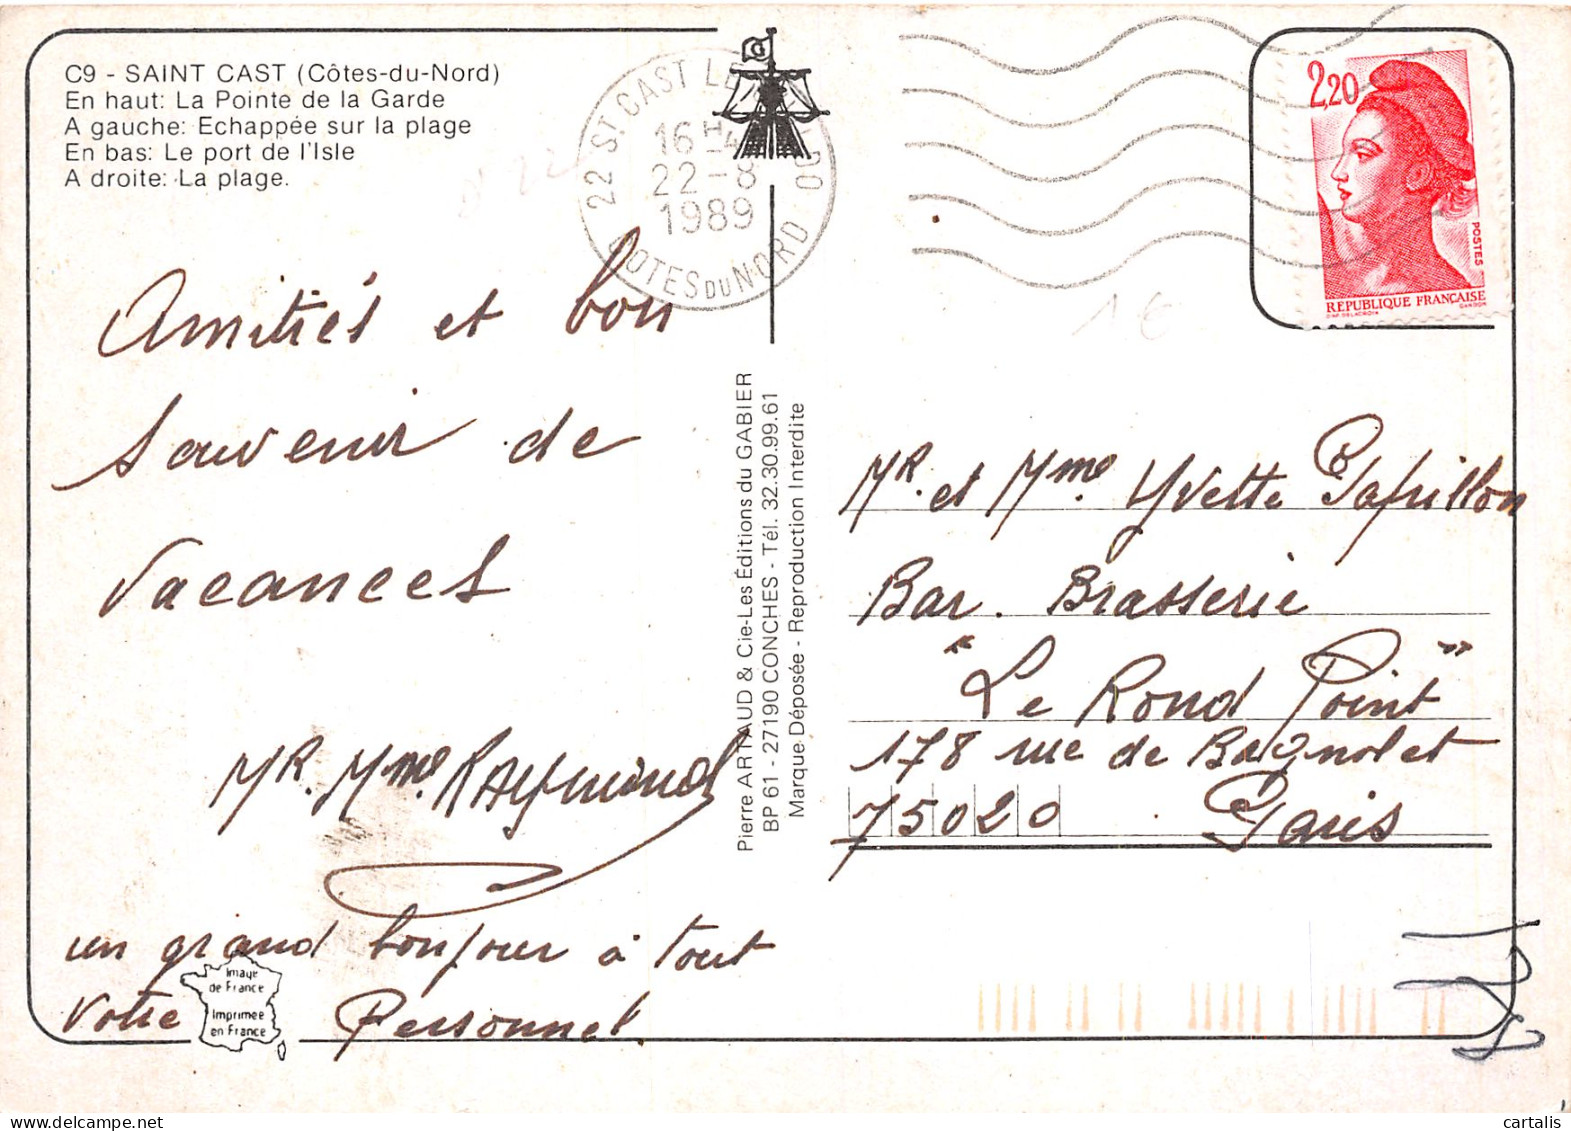 C9 - SAINT CAST (Côtes-du-Nord)
En haut: La Pointe de la Garde
A gauche: Echappée sur la plage
En bas: Le port de l'Isle
A droite: La plage.
22 ST CAST LE
16H4
22-8
1989
COTES DU NORD
2,20
POSTES
REPUBLIQUE FRANÇAISE
D'AP. DELACROIX
GANDON
1 €
Amitiés et bon
souvenir de
vacances
MR. Mme RAymond
un grand bonjour à tout
votre Personnel.
Image
de France
Imprimée
en France
Pierre ARTAUD & Cie-Les Éditions du GABIER
BP 61 - 27190 CONCHES - Tél. 32.30.99.61
Marque Déposée - Reproduction Interdite
MR. et Mme Yvette Papillon
Bar. Brasserie
"Le Rond Point"
178 rue de Bagnolet
75020 Paris
cartalis